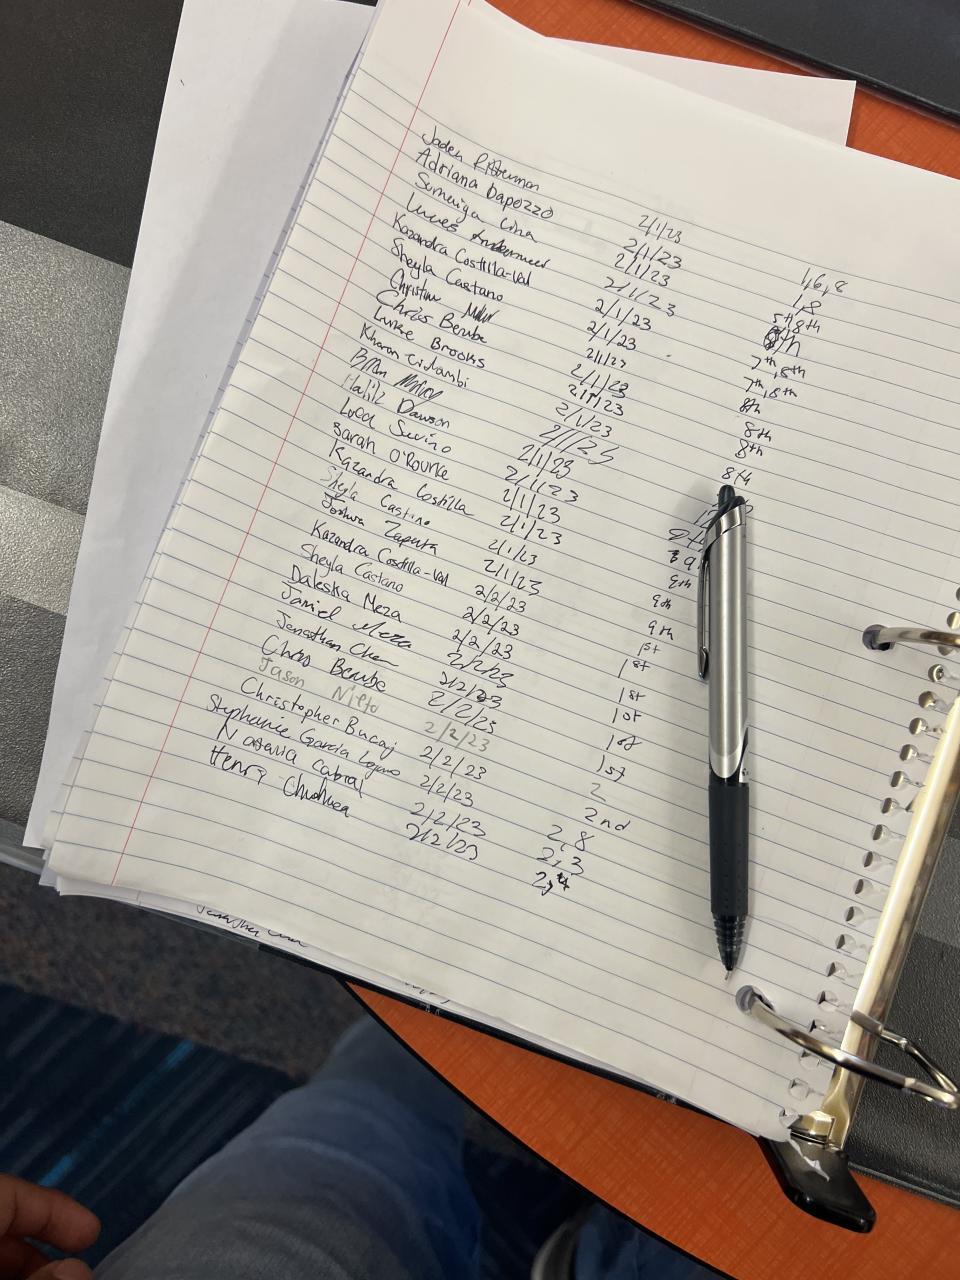 Jaden Pitterman 2/1/23 1,6,8
Adriana Dapozzo 2/1/23 1,8
Lina 2/1/23 5th,8th
Lucas 2/1/23 8th
Kazandra Costilla-Val 2/1/23 7th,8th
Sheyla Castano 2/1/23 7th,8th
Christine 2/1/23 8th
Chris Berube 2/1/23 8th
Luke Brooks 2/1/23 8th
2/1/23 8th
2/1/23
Dawson 2/1/23
Luca Savino 2/1/23
Sarah O'Rourke 2/1/23 9th
Kazandra Costilla 2/1/23 9th
Sheyla Castano 2/1/23 9th
Joshua Zapata 2/2/23 1st
Kazandra Costilla-Val 2/2/23 1st
Sheyla Castano 2/2/23 1st
Daleska Meza 2/2/23 1st
Jamiel Meza 2/2/23 1st
Jonathan Chen 2/2/23 1st
Chris Berube 2/2/23 2
Jason Nieto 2/2/23 2nd
Christopher Bucaj 2/2/23 2,8
Stephanie Garcia Lojano 2/2/23 2,3
Natavia Cabral 2/2/23 2,
Henry 2/2/23